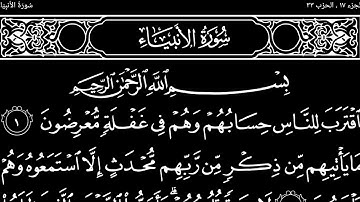 الجزء ١٧ ، الحزب ٣٣
سورة الأنبياء
سُورَةُ الأَنبِيَاءِ
بِسْمِ اللَّهِ الرَّحْمَٰنِ الرَّحِيمِ
ٱقْتَرَبَ لِلنَّاسِ حِسَابُهُمْ وَهُمْ فِى غَفْلَةٍ مُّعْرِضُونَ ١
مَا يَأْتِيهِم مِّن ذِكْرٍ مِّن رَّبِّهِم مُّحْدَثٍ إِلَّا ٱسْتَمَعُوهُ وَهُمْ